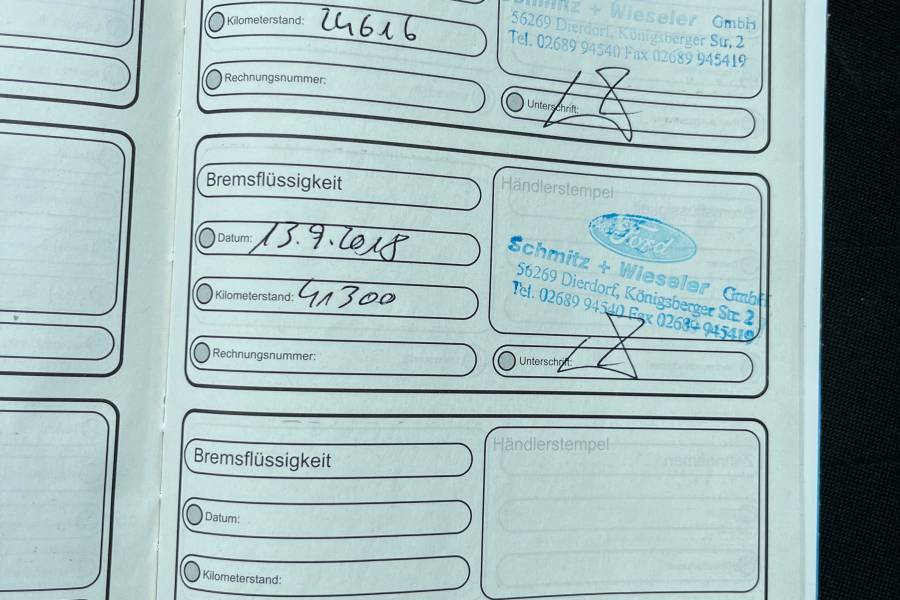 Kilometerstand: 24616
Rechnungsnummer:
Schmitz + Wieseler GmbH
56269 Dierdorf, Königsberger Str. 2
Tel. 02689 94540 Fax 02689 945419
Unterschrift:
Bremsflüssigkeit
Datum: 13.9.2018
Kilometerstand: 41300
Rechnungsnummer:
Händlerstempel
Ford
Schmitz + Wieseler GmbH
56269 Dierdorf, Königsberger Str. 2
Tel. 02689 94540 Fax 02689 945419
Unterschrift:
Bremsflüssigkeit
Datum:
Kilometerstand:
Händlerstempel